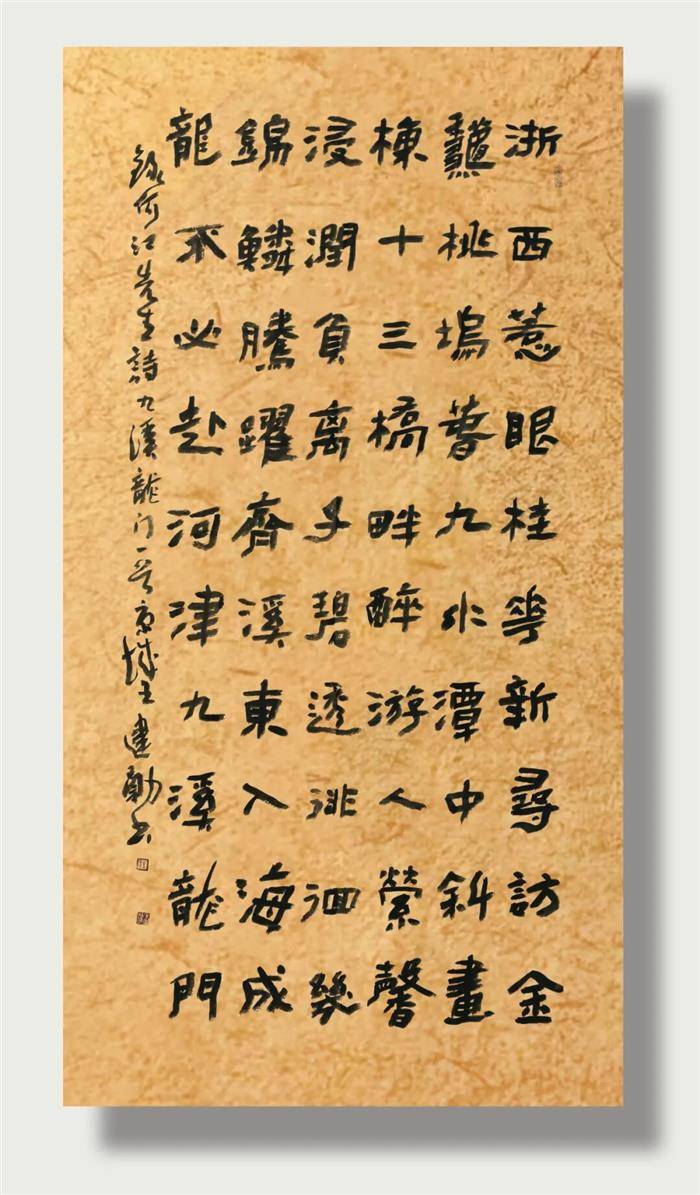 浙西惹眼桂華新尋訪金
桃塢萅九水潭中斜畫
棟十三橋畔醉游人縈馨
浸潤負离子碧透徘徊幾
錦鱗騰躍齊溪東入海成
龍不必赴河津九溪龍門
錄何江先生詩九溪龍门一首京城王建勛书